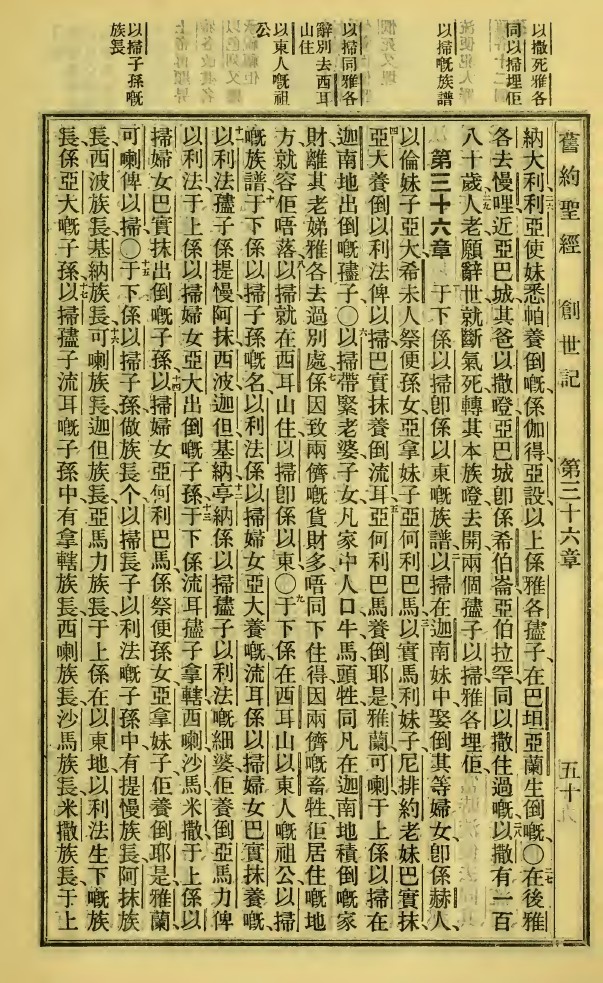 以撒死雅各
同以掃埋佢
以掃嘅族譜
以掃同雅各
辭別去西耳
山住
以東人嘅祖
公
以掃子孫嘅
族長
舊約聖經 創世記 第三十六章 五十
納大利利亞使妹悉帕養倒嘅、係伽得亞設以上係雅各孻子在巴坦亞蘭生倒嘅〇在後雅
各去慢哩近亞巴城其爸以撒嶝亞巴城卽係希伯崙亞伯拉罕同以撒住過嘅以撒有一百
八十歲人老願辭世就斷氣死轉其本族嶝去開兩個孻子以掃雅各埋佢、
第三十六章 于下係以掃卽係以東嘅族譜以掃在迦南妹中娶倒其等婦女卽係赫人、
以倫妹子亞大希未人祭便孫女亞拿妹子亞何利巴馬以實馬利妹子尼排約老妹巴實抹
亞大養倒以利法俾以掃巴實抹養倒流耳亞何利巴馬養倒耶是雅蘭可喇于上係以掃在
迦南地出倒嘅孻子〇以掃帶緊老婆子女凡家中人口牛馬頭牲同凡在迦南地積倒嘅家
財離其老娣雅各去過別處係因致兩儕嘅貨財多唔同下住得因兩儕嘅畜牲佢居住嘅地
方就容佢唔落以掃就在西耳山住以掃卽係以東〇于下係在西耳山以東人嘅祖公以掃
嘅族譜于下係以掃子孫嘅名以利法係以掃婦女亞大養嘅流耳係以掃婦女巴實抹養嘅、
以利法孻子係提慢阿抹西波迦但基納亭納係以掃孻子以利法嘅細婆佢養倒亞馬力俾
以利法于上係以掃婦女亞大出倒嘅子孫于下係流耳孻子拿轄西喇沙馬米撒于上係以
掃婦女巴實抹出倒嘅子孫以掃婦女亞何利巴馬係祭便孫女亞拿妹子佢養倒耶是雅蘭
可喇俾以掃〇于下係以掃子孫做族長个以掃長子以利法嘅子孫中有提慢族長阿抹族
長西波族長基納族長可喇族長迦但族長亞馬力族長于上係在以東地以利法生下嘅族
長係亞大嘅子孫以掃孻子流耳嘅子孫中有拿轄族長西喇族長沙馬族長米撒族長于上